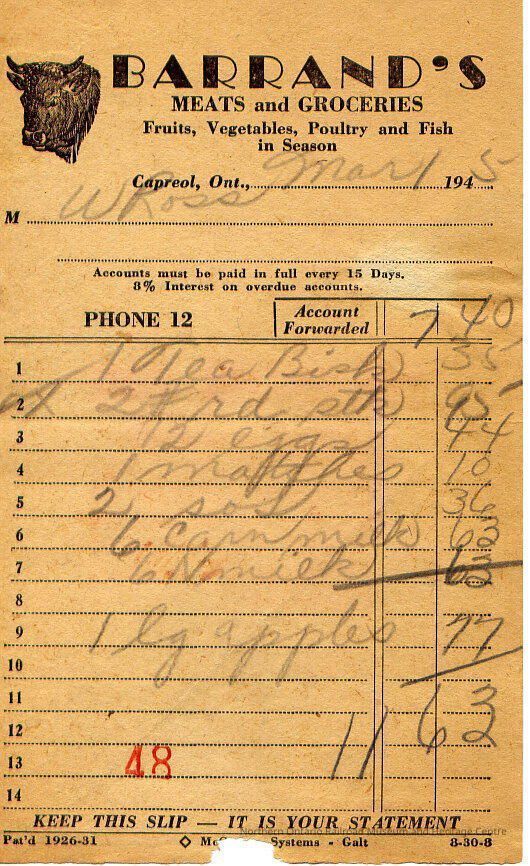 BARRAND'S
MEATS and GROCERIES
Fruits, Vegetables, Poultry and Fish
in Season
Capreol, Ont., Mar 1 1945
M W Ross
Accounts must be paid in full every 15 Days.
8% Interest on overdue accounts.
PHONE 12 Account Forwarded 7 40
1 1 Tea Bisk 35
2 2# rd stk 95
3 12 eggs 44
4 1 matches 10
5 2 sos 36
6 6 Carn milk 63
7 6 N milk 63
8
9 1 lg apples 77
10
11
12 11 63
13 48
14
KEEP THIS SLIP — IT IS YOUR STATEMENT
Northern Ontario Railroad Museum and Heritage Centre
Pat'd 1926-31 Systems - Galt 8-30-8